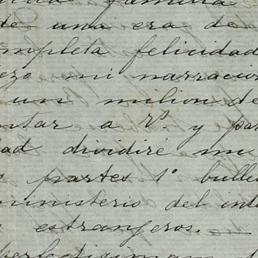 familia
de una era de
completa felicidad
mi narracion
un million de
ntar a Vº. y par
ad dividire mi
partes 1º bulle
ministerio del int
estranjeros.